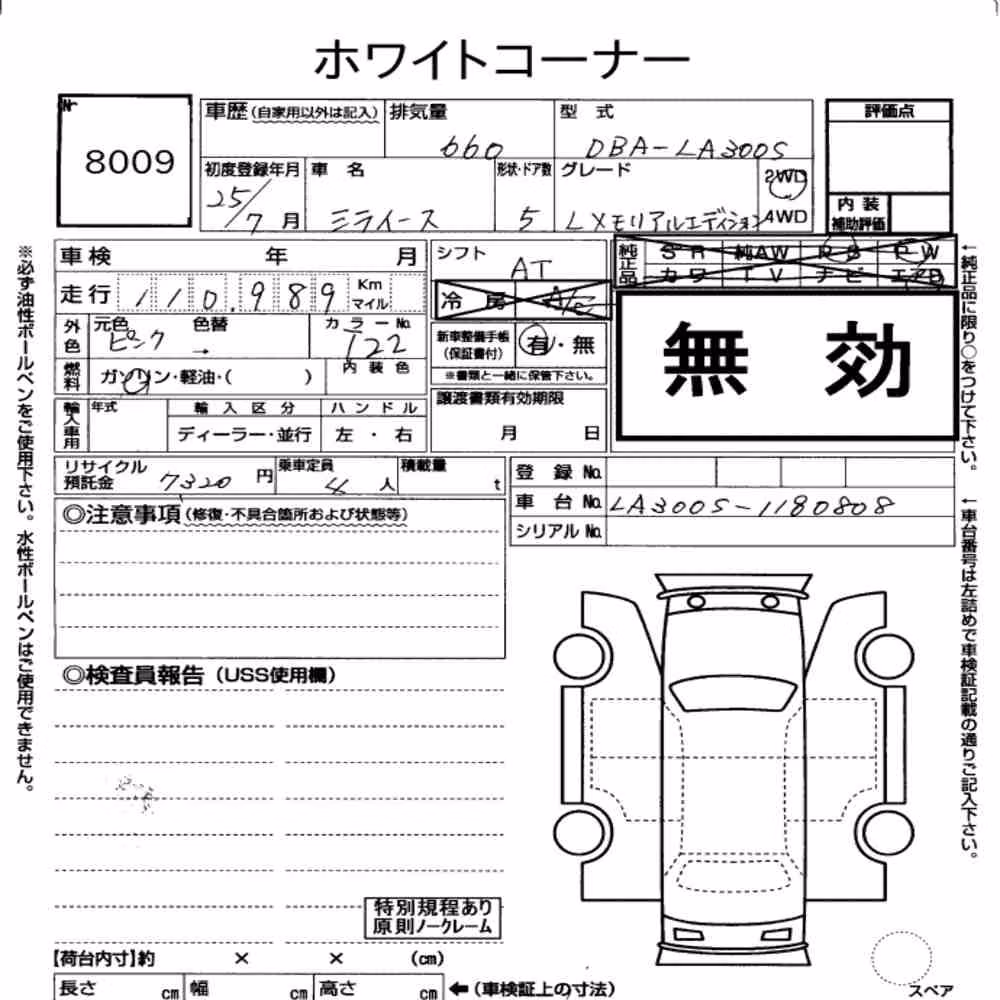 ホワイトコーナー
No.
8009
車歴(自家用以外は記入) 排気量 660 型式 DBA-LA300S
初度登録年月 25/7月 車名 ミライース 形状・ドア数 5 グレード LXメモリアルエディション 2WD 4WD
評価点
内装
補助評価
車検 年 月
シフト AT
純正品 SR 純AW PS PW
カワ TV ナビ エアB
走行 110,989 Km マイル
冷房 A/C
外色 元色 ピンク 色替 → カラーNo. T22
新車整備手帳(保証書付) 有・無
※書類と一緒に保管下さい。
無効
燃料 ガソリン・軽油・( ) 内装色
譲渡書類有効期限
月 日
輸入車用 年式 輸入区分 ハンドル
ディーラー・並行 左・右
リサイクル預託金 7320円 乗車定員 4人 積載量 t
登録No.
車台No. LA300S-1180808
シリアルNo.
◎注意事項(修復・不具合箇所および状態等)
◎検査員報告(USS使用欄)
特別規程あり
原則ノークレーム
【荷台内寸】約 × × (cm)
長さ cm 幅 cm 高さ cm ←(車検証上の寸法)
スペア
※必ず油性ボールペンをご使用下さい。水性ボールペンはご使用できません。
←純正品に限り○をつけて下さい。
←車台番号は左詰めで車検証記載の通りご記入下さい。